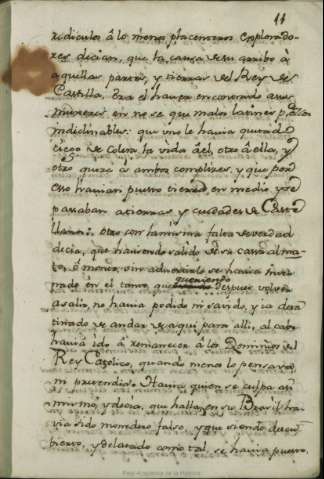 11
ridiculos â lo menos placenteros explorado-
res decian, que la causa de su arribo à
aquellas partes, y tierras del Rey de
Castilla, era el haver encontrado a sus
mugeres en no se que malos latines p.
indeclinables: que uno le havia quitado
ciego de colera la vida à el, otro à ella, y
otro quizá a ambos complices, y que por
esso havian puesto tierra en medio, y se
passaban a tierras y ciudades de Caste
llanos: otro con la misma falta de verdad
decia, que haviendo salido de su casa al ma-
te, ô monte, sin advertirlo se havia inter
nado en el tanto, que queriendo despues volver
a salir, no havia podido ni savido, y a desa
tinado de andar de aqui para alli, al cabo
havia ido â remanecer â los Dominios del
Rey Catolico, quando menos lo pensava,
ni pretendia. Havia quien se culpa asi
mismo, y decia, que hallandose en Brasil ha-
via sido monedero falso, y que siendo descu
bierto, y declarado como tal, se havia puesto
Real Academia de la Historia